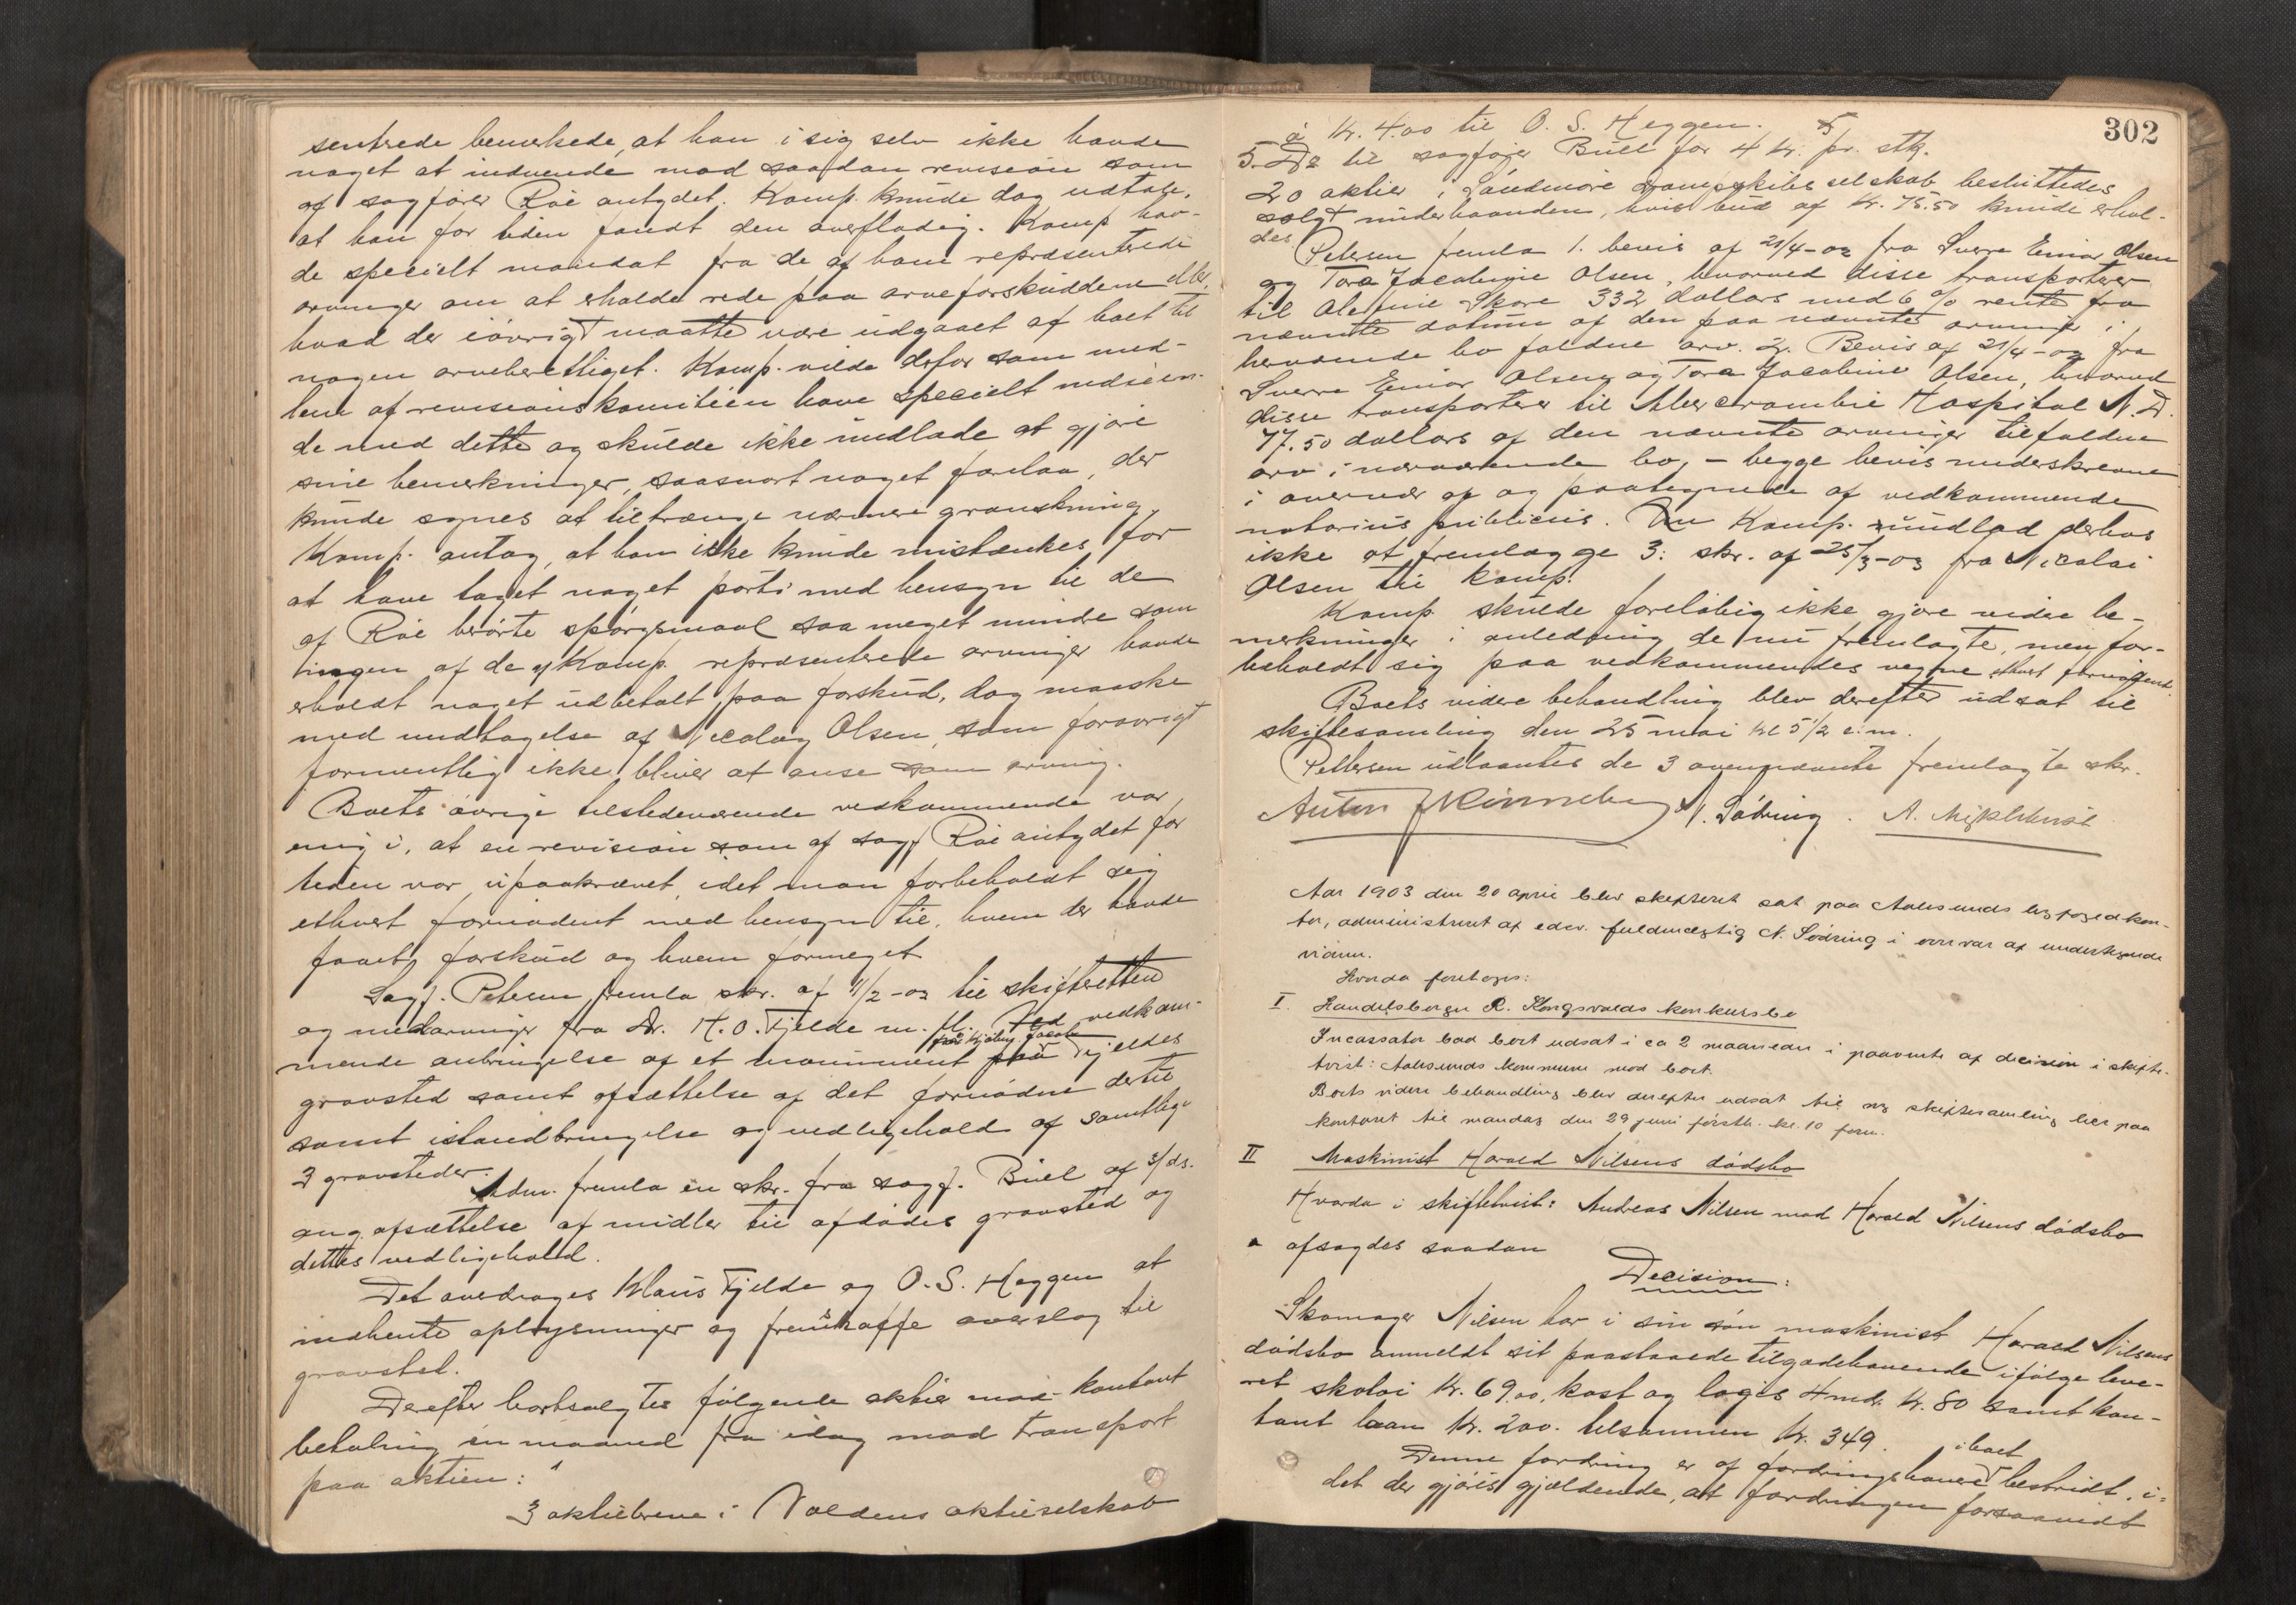 sentrede bemerkede, at han i sig selv ikke havde
noget at indvende mod saadan revision som
af sagfører Röe antydet. Komp. kunde dog udtale,
at han for tiden fandt den overflødig. Komp hav-
de specielt mandat fra de af ham repræsenterede
arvinger om at erholde rede paa arveforskuddene eller
hvad der iøvrigt maatte være udgaaet af boet til
nogen arveberettiget. Komp. vilde derfor som med-
lem af revisionskomiteen have specielt
de med dette og skulde ikke undlade at gjøre
sine bemerkninger, saasnart noget forelaa, der
kunde synes at tiltrænge nærmere granskning.
Komp. antog, at han ikke kunde mistænkes for
at have taget noget parti med hensyn til de
af Röe berørte spørgsmaal saa meget mindre som
ingen af de af Komp. repræsenterede arvinger havde
erholdt noget udbetalt paa forskud, dog maaske
med undtagelse af Nicolay Olsen, som forøvrigt
formentlig ikke bliver at anse som arving.
Boets øvrige tilstedeværende vedkommende var
enig i, at en revision som af sagf Röe antydet for
tiden var upaakrævet, idet man forbeholdt sig
ethvert fornødent med hensyn til, hvem der havde
faaet forskud og hvem formeget
Sagf. Petersen fremla skr. af 11/2-03 til skifteretten
og medarvinger fra Dr. H. O. Fjelde m. fl. vedkom-
mende anbringelse af et monument paa Fjeldes
gravsted samt afsættelse af det fornødne dertil
samt istandbringelse og vedligehold af samtlige
3 gravsteder.
Adm. fremla en skr. fra sagf. Buel af 3/ds.
ang. afsættelse af midler til afdødes gravsted og
dettes vedligehold.
Det overdroges Klaus Fjelde og O. S. Heggen at
indhente oplysninger og fremskaffe overslag til
gravsted.
Derefter bortsolgtes følgende aktier mod kontant
betaling en maaned fra idag mod transport
paa aktien:
3 aktiebreve i Voldens aktieselskab
302
à Kr. 4.00 til O. S. Heggen.
5. Do til sagfører Buel for 4 kr. pr. stk.
20 aktier i Søndmøre dampskibsselskab besluttedes
solgt underhaanden, hvis bud af kr. 75.50 kunde erhol-
des
Petersen fremla 1. bevis af 21/4-02 fra Sverre Einar Olsen
og Tora Jacobine Olsen, hvorved disse transporterer
til Olefine Skare 332 dollars med 6% rente fra
nævnte datum af den paa nævnte arvinger i
herværende bo faldne arv. 2. Bevis af 21/4-02 fra
Sverre Einar Olsen og Tora Jacobine Olsen, hvorved
disse transporterer til Abercrombie Hospital N. D.
77.50 dollars af den nævnte arvinger tilfaldne
arv i nærværende bo, - begge bevis underskrevne
i overvær af og paategnede af vedkommende
notarius publicus. Komp. undlod derhos
ikke at fremlægge 3: skr. af 25/3-03 fra Nicolai
Olsen til komp.
Komp skulde foreløbig ikke gjøre videre be-
merkninger i anledning de nu fremlagte, men for-
beholdt sig paa vedkommendes vegne ethvert fornødent.
Boets videre behandling blev derefter udsat til
skiftesamling den 25 mai kl 5 1/2 e.m.
Pettersen udlaantes de 3 ovennævnte fremlagte skr.
Anton N. Södring. A. Myklebust
Aar 1903 den 20 april blev skifteret sat paa Aalesunds byfogedkon-
tor, administreret af edsv. fuldmægtig N. Södring i overvær af undertegnede
vidner.
Hvorda foretoges:
I. Handelsborger R. Kongsvolds konkursbo
Incassator bad boet udsat i ca 2 maaneder i paavente af decision i skifte-
tvist: Aalesunds kommune mod boet.
Boets videre behandling blev derefter udsat til ny skiftesamling her paa
kontoret til mandag den 29 juni førstk. kl. 10 form.
II Maskinist Harald Nilsens dødsbo
Hvorda i skiftetvist: Andreas Nilsen mod Harald Nilsens dødsbo
afsagdes saadan
Decision:
Skomager Nilsen har i sin søn maskinist Harald Nilsens
dødsbo anmeldt sit paastaaede tilgodehavende ifølge leve-
ret skotøi kr. 69.00, kost og logis 4 mdr. kr. 80 samt kon-
tant laan kr. 200. tilsammen kr. 349.
Denne fordring er af fordringshavere i boet bestridt, i-
det der gjøres gjældende, at fordringen forsaavidt